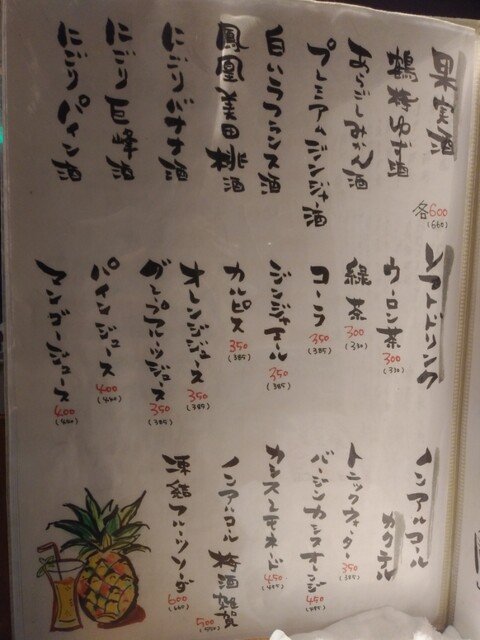 果実酒
各600
(660)
鶴梅ゆず酒
あらごしみかん酒
プレミアムジンジャー酒
白いラフランス酒
鳳凰美田 桃酒
にごりバナナ酒
にごり巨峰酒
にごりパイン酒
ソフトドリンク
ウーロン茶 300
(330)
緑茶 300
(330)
コーラ 350
(385)
ジンジャエール 350
(385)
カルピス 350
(385)
オレンジジュース 350
(385)
グレープフルーツジュース 350
(385)
パインジュース 400
(440)
マンゴージュース 400
(440)
ノンアルコール
カクテル
トニックウォーター 350
(385)
バージンカシスオレンジ 450
(495)
カシスレモネード 450
(495)
ノンアルコール 梅酒 雑賀 500
(550)
凍結フルーツソーダ 600
(660)